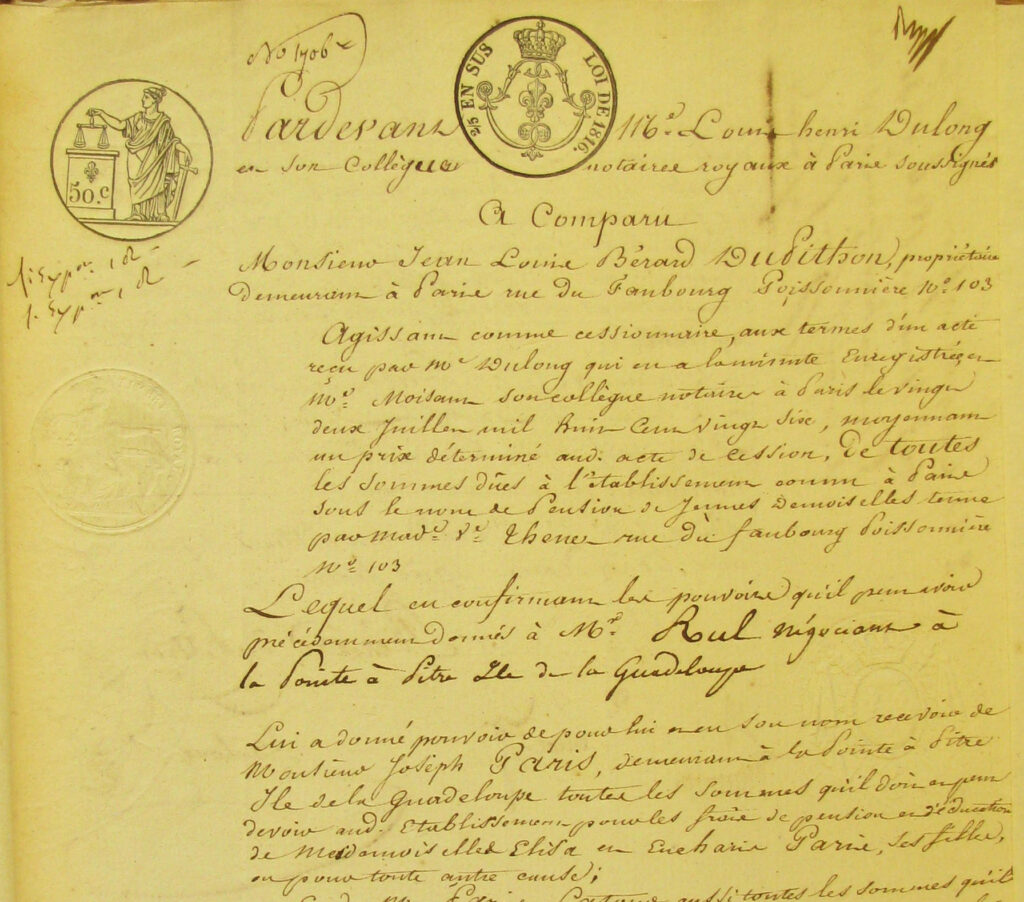 No 1706
2/5 EN SUS LOI DE 1816.
50.C
Pardevant Me. Louis henri Dulong
et son Collègue notaires royaux à Paris soussignés
A Comparu
Monsieur Jean Louis Bérard Dupithon, propriétaire
demeurant à Paris rue du Faubourg Poissonnière No. 103
Agissant comme cessionnaire, aux termes d'un acte
reçu par Me Dulong qui en a la minute Enregistrée, et
Me. Moisant son collègue notaires à Paris le vingt
deux Juillet mil huit Cent vingt six, moyennant
un prix déterminé aud. acte de cession, de toutes
les sommes dûes à l'établissement connu à Paris
sous le nom de Pension de Jeunes Demoiselles tenue
par made. Ve. Thene rue du faubourg Poissonnière
No. 103
Lequel en confirmant les pouvoirs qu'il peut avoir
précédemment donnés à Mr. Rul Négociant à
la Pointe à Pitre Ile de la Guadeloupe
Lui a donné pouvoir de pour lui et en son nom recevoir de
Monsieur Joseph Paris, demeurant à la Pointe à Pitre
Ile de la Guadeloupe toutes les sommes qu'il doit et peut
devoir aud. Etablissement pour les frais de pension et d'éducation
de Mesdemoiselles Elisa et Eucharis Paris, ses filles,
ou pour toute autre cause;
aussi toutes les sommes qu'il